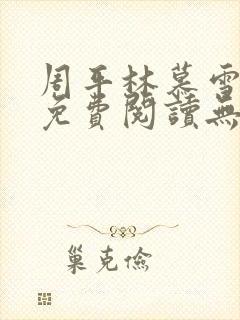 周平林慕雪
免費閱讀無
巢克儉